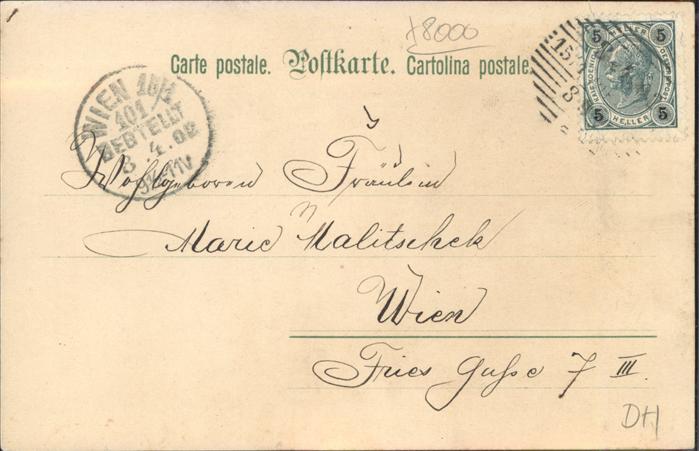 +8000
Carte postale. Postkarte. Cartolina postale.
5 5
HELLER
5 5
HELLER
WIEN 10/1
101
BESTELLT
8.4.02
Wohlgeboren Fräulein
Marie Malitschek
Wien
Fries Gasse 7 III.
DH